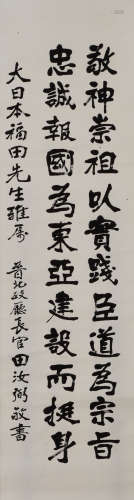 敬神崇祖以實踐臣道為宗旨
忠誠報國為東亞建設而挺身
大日本福田先生雅屬 晉北政廳長官田汝弼敬書